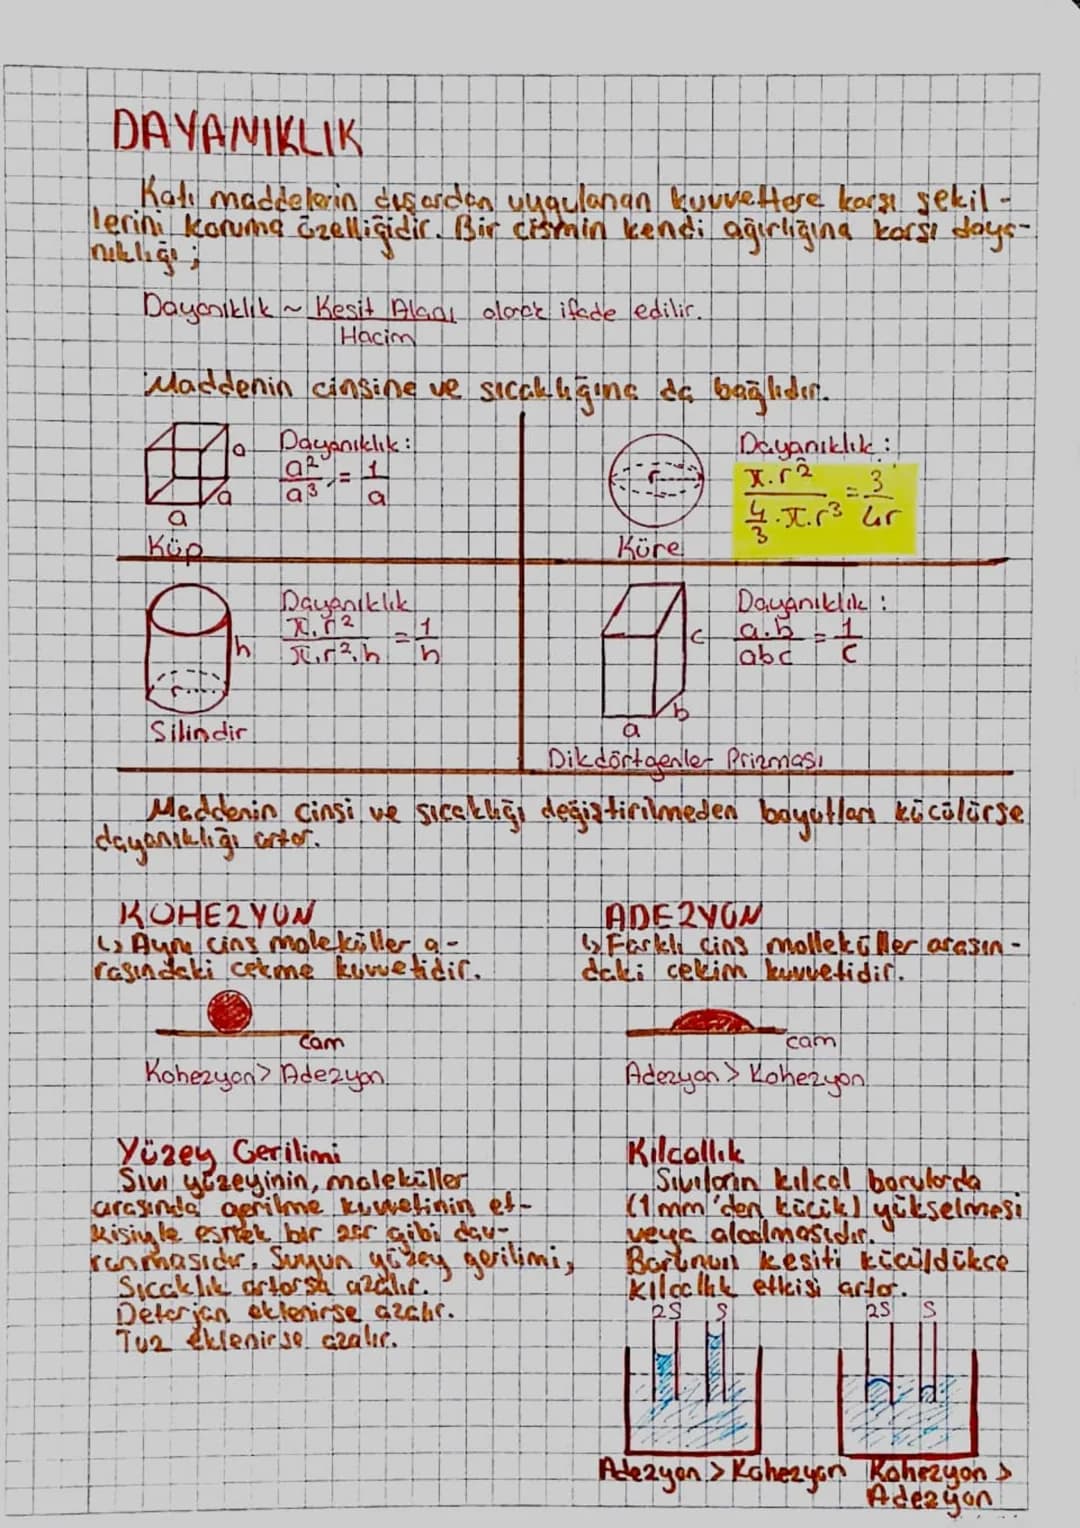 DAYANIKLIK
Katı maddelerin dışardan uygulanan kuvvetlere karşı şekil-
lerini koruma özelliğidir. Bir cismin kendi ağırlığına karşı daya-
nıklığı;
Dayanıklık ~ Kesit Alanı olarak ifade edilir.
Hacim
Maddenin cinsine ve sıcaklığına da bağlıdır.
a
a
a
Küp
Dayanıklık:
a²/a³ = 1/a
r
Küre
Dayanıklık:
π.r² / 4/3.π.r³ = 3/4r
h
r
Silindir
Dayanıklık
π.r² / π.r².h = 1/h
c
b
a
Dikdörtgenler Prizması
Dayanıklık:
a.b / abc = 1/c
Maddenin cinsi ve sıcaklığı değiştirilmeden boyutları küçülürse
dayanıklığı artar.
KOHEZYON
↳ Aynı cins moleküller a-
rasındaki çekme kuvvetidir.
cam
Kohezyon > Adezyon
ADEZYON
↳ Farklı cins molleküller arasın-
daki çekim kuvvetidir.
cam
Adezyon > Kohezyon
Yüzey Gerilimi
Sıvı yüzeyinin, moleküller
arasında gerilme kuvvetinin et-
kisiyle esnek bir zar gibi dav-
ranmasıdır. Suyun yüzey gerilimi;
Sıcaklık artarsa azalır.
Deterjan eklenirse azalır.
Tuz eklenirse azalır.
Kılcallık
Sıvıların kılcal borularda
(1mm'den küçük) yükselmesi
veya alçalmasıdır.
Borunun kesiti küçüldükçe
kılcallık etkisi artar.
2S S
2S S
Adezyon > Kohezyon
Kohezyon >
Adezyon